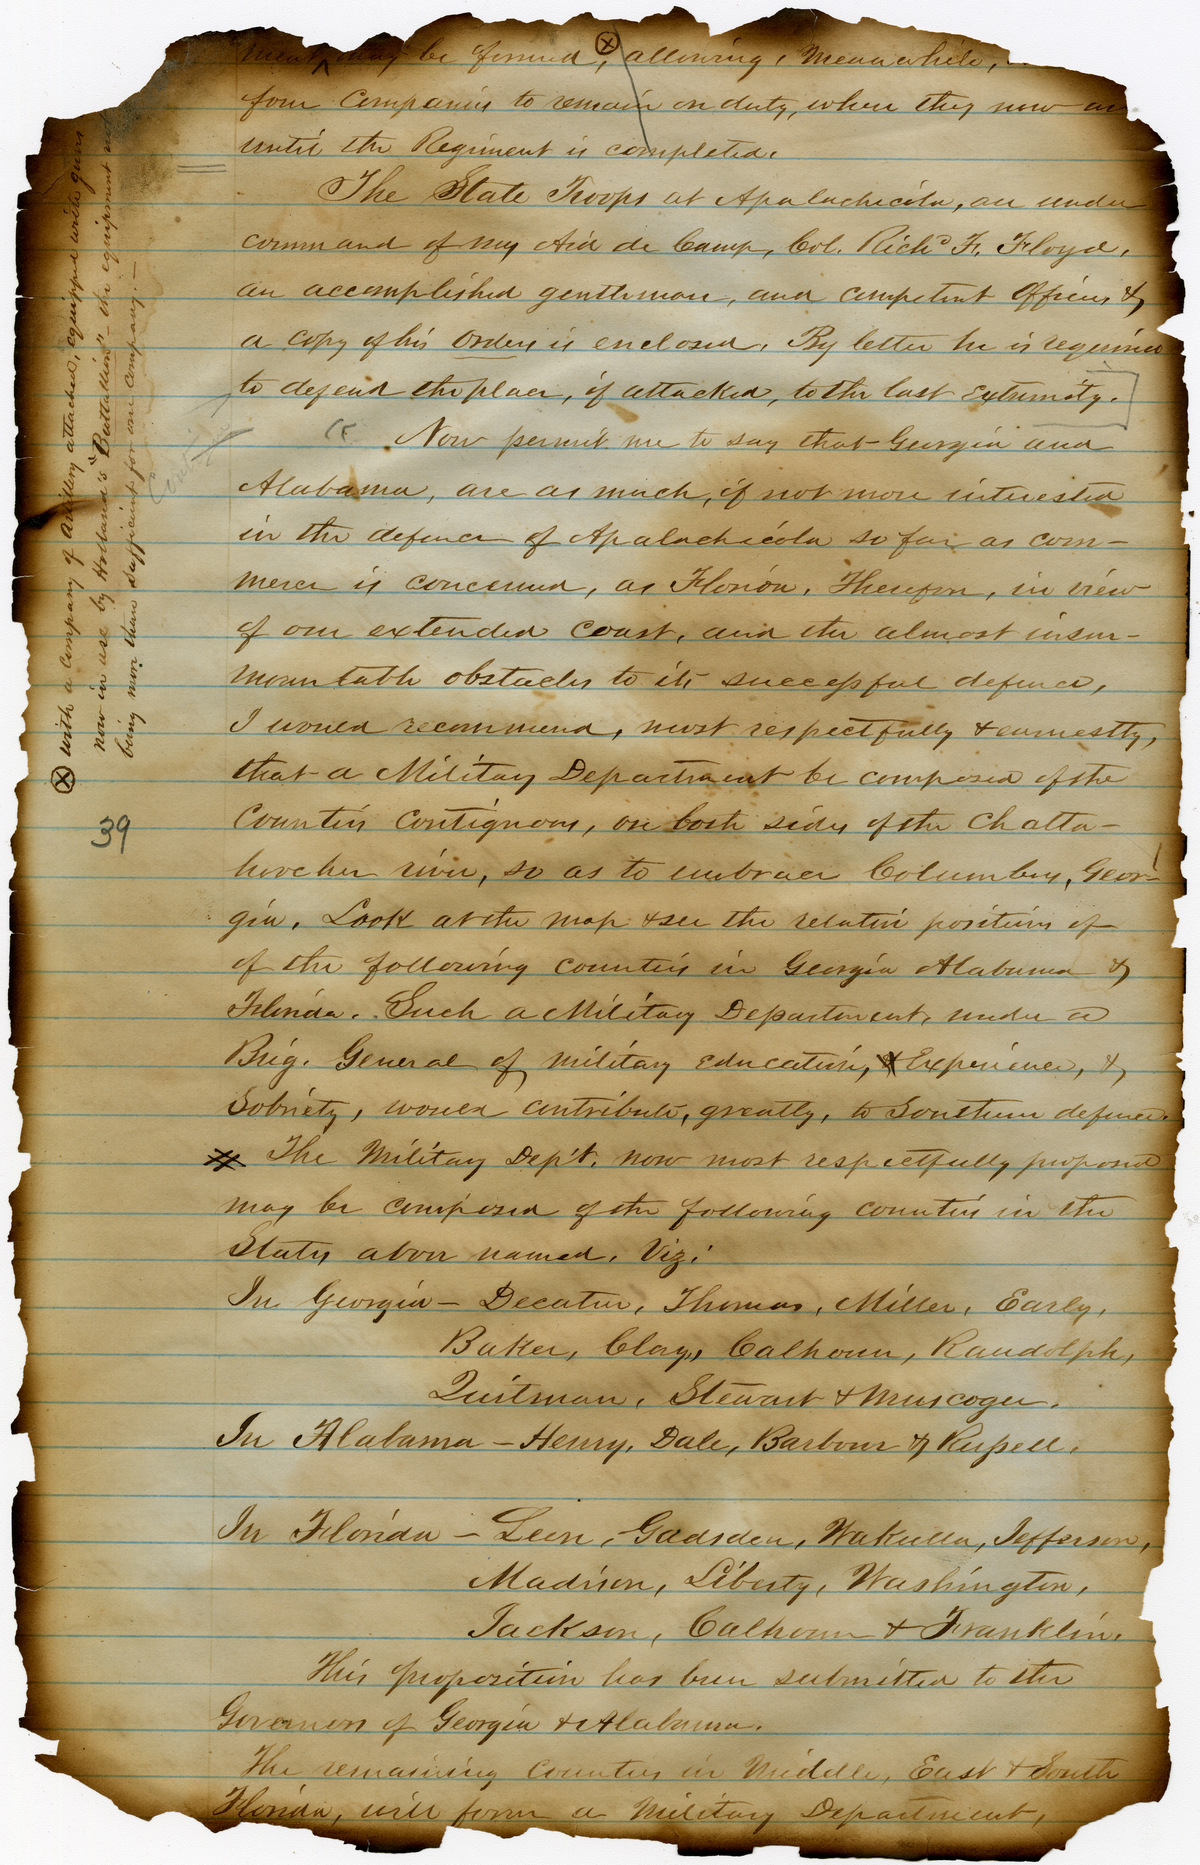 ment may be formed, ⊗ allowing, Meanwhile,
four Companies to remain on duty, where they now are
until the Regiment is completed.
The State Troops at Apalachicola, are under
command of my Aid de Camp, Col. Richd F. Floyd,
an accomplished gentleman, and competent Officer, &
a copy of his Orders is enclosed. By letter he is required
to defend the place, if attacked, to the last extremity.
Now permit me to say that Georgia and
Alabama, are as much, if not more interested
in the defence of Apalachicola so far as com-
merce is concerned, as Florida. Therefore, in view
of our extended coast, and the almost insur-
mountable obstacles to its successful defence,
I would recommend, most respectfully & earnestly,
that a Military Department be composed of the
Counties contiguous, on both sides of the Chatta-
hoochee river, so as to embrace Columbus, Geor-
gia. Look at the map & see the relative positions of
of the following counties in Georgia Alabama &
Florida. Such a Military Department, under a
Brig. General of military education, & Experience, &
Sobriety, would contribute, greatly, to Southern defence.
The Military Dep't. now most respectfully proposed
may be composed of the following counties in the
States above named, Viz:
In Georgia – Decatur, Thomas, Miller, Early,
Baker, Clay, Calhoun, Randolph,
Quitman, Stewart & Muscogee.
In Alabama – Henry, Dale, Barbour & Russell.
In Florida – Leon, Gadsden, Wakulla, Jefferson,
Madison, Liberty, Washington,
Jackson, Calhoun & Franklin.
This proposition has been submitted to the
Governors of Georgia & Alabama.
The remaining Counties in Middle, East & South
Florida, will form a Military Department,
⊗ with a Company of Artillery attached, equipped with guns
now in use by Holland's "Battallion" – the equipment
being more than sufficient for one Company. –
39